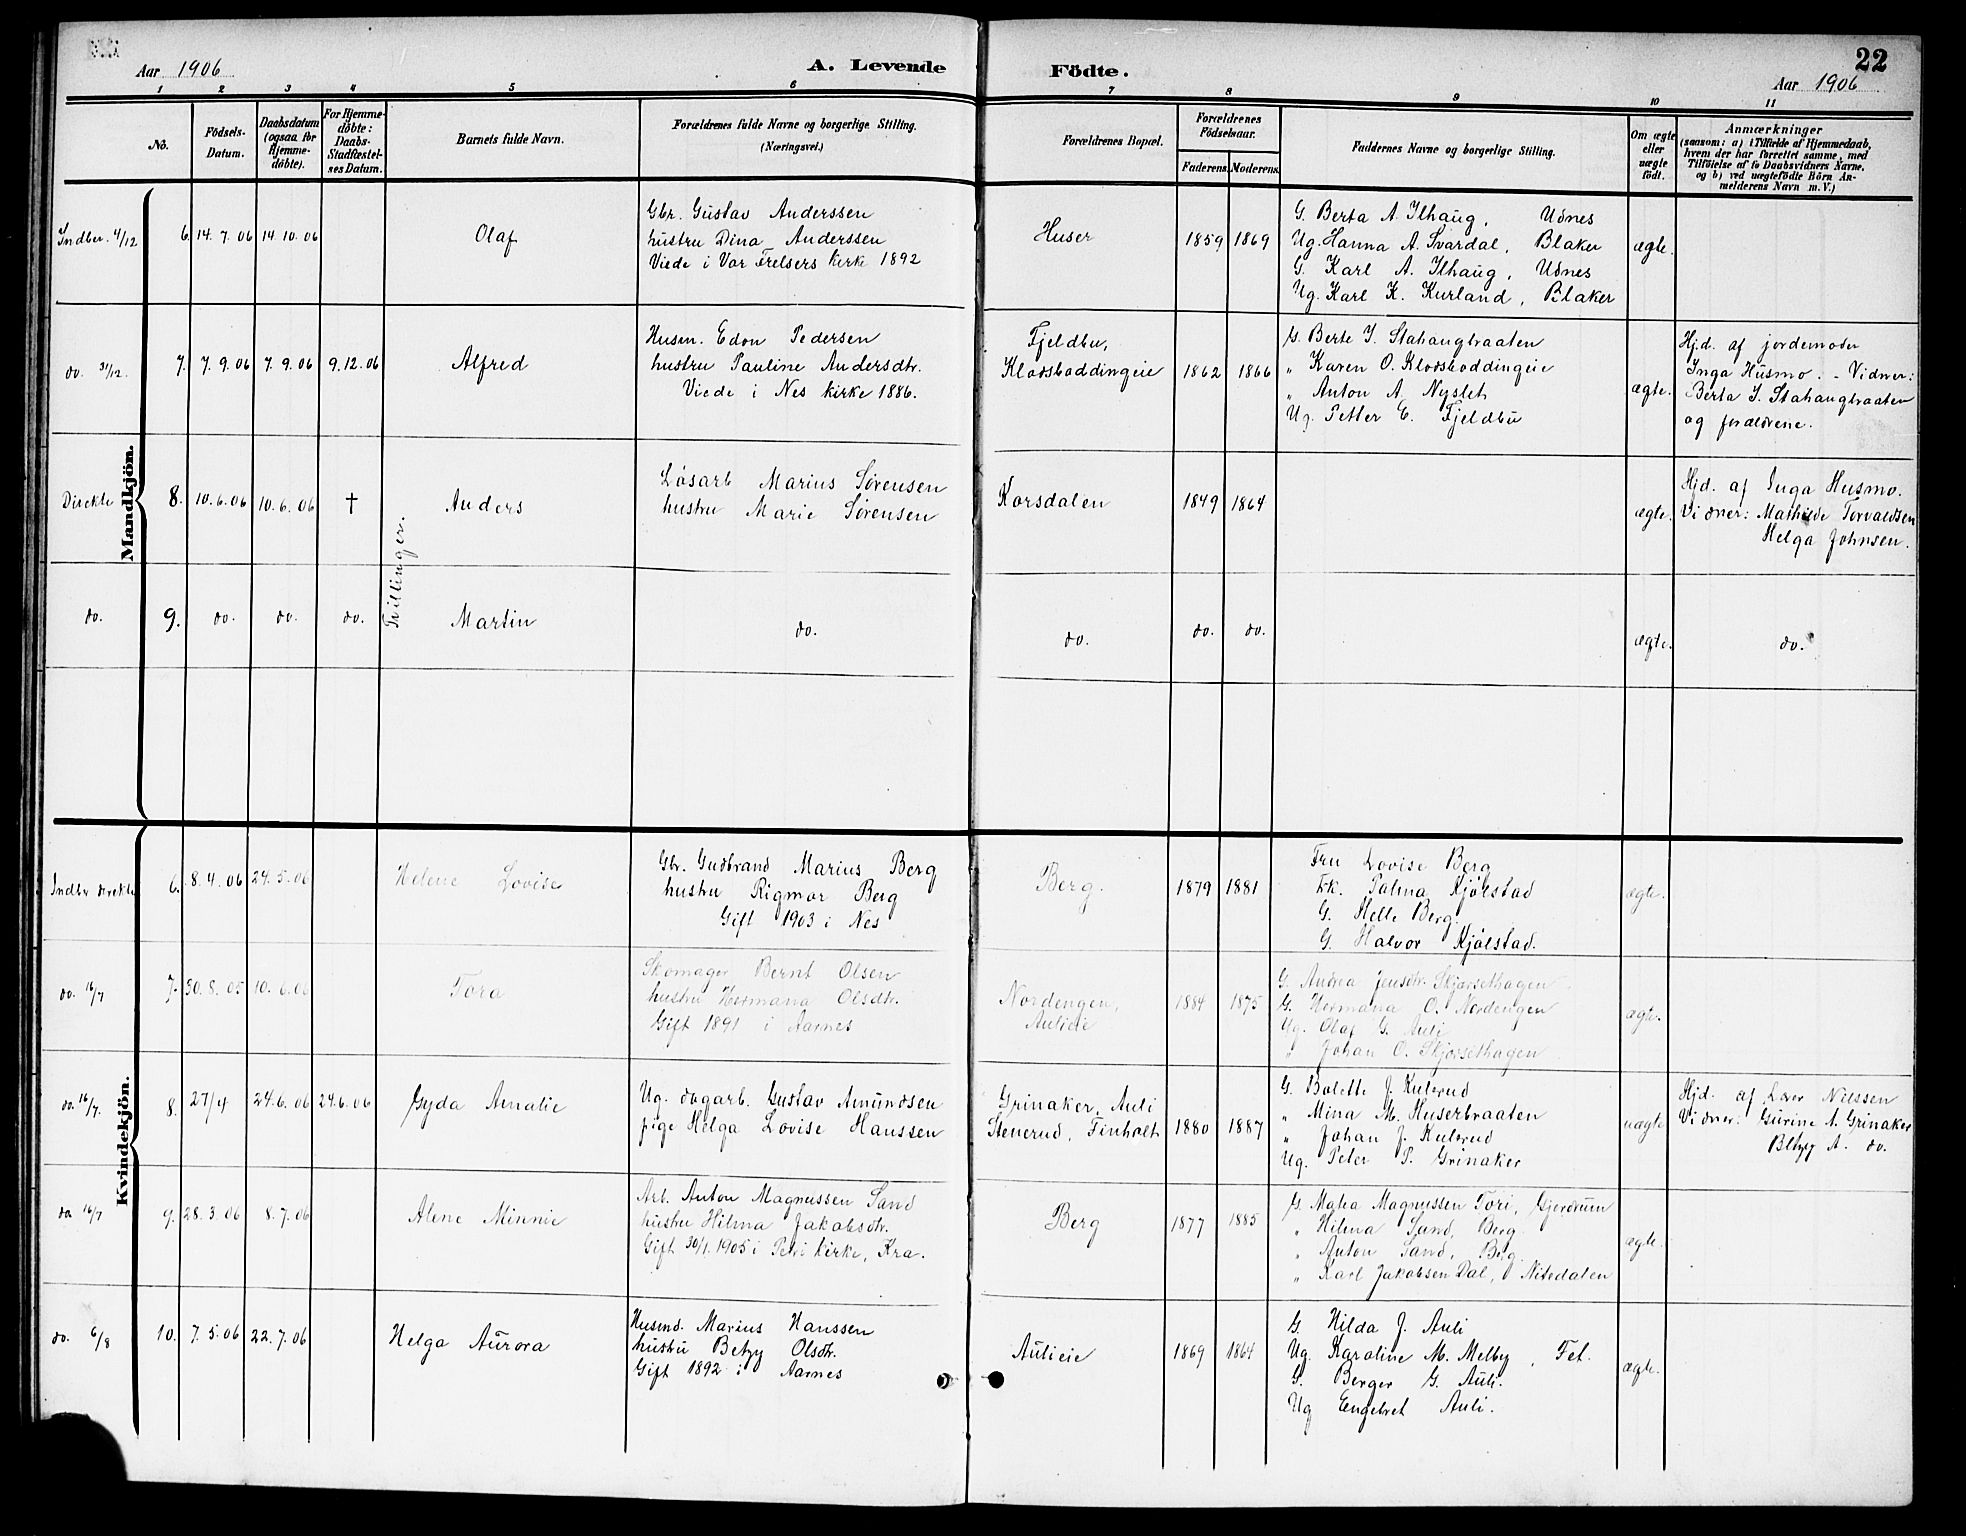 Aar 1906
A. Levende
Födte.
22
Aar 1906
1 2 3 4 5 6 7 8 9 10 11
No.
Födsels-
Datum.
Daabsdatum
(ogsaa for
Hjemme-
döbte).
For Hjemme-
döbte:
Daabs-
Stadfæstel-
ses Datum.
Barnets fulde Navn.
Forældrenes fulde Navne og borgerlige Stilling.
(Næringsvei.)
Forældrenes Bopæl.
Forældrenes
Födselsaar.
Faderens Moderens
Faddernes Navne og borgerlige Stilling.
Om ægte
eller
uægte
födt.
Anmærkninger
(saasom: a) i Tilfælde af Hjemmedaab,
hvem der har forrettet samme, med
Tilföielse af to Daabsvidners Navne,
og b) ved uægtefödte Börn An-
melderens Navn m. V.)
Mandkjön.
Indber. 4/12 6. 14. 7. 06 14. 10. 06 Olaf
Gbr. Gustav Anderssen
hustru Dina Anderssen
Viede i Vor frelsers kirke 1892
Huser 1859 1869
G. Berta A. Ilhaug, Udnes
Ug. Hanna A. Svardal, Blaker
G. Karl A. Ilhaug, Udnes
Ug. Karl K. Kurland, Blaker
ægte.
do. 31/12. 7. 7. 9. 06 7. 9. 06 9. 12. 06 Alfred
Husm. Edon Pedersen
hustru Pauline Andersdtr.
Viede i Nes kirke 1886.
Fjeldbu,
Klodsboddingeie 1862 1866
G. Berte J. Stahaugbraaten
" Karen O. Klodsboddingeie
" Anton A. Nyslet
Ug. Petter E. Fjeldbu
ægte.
Hjd. af jordemoder
Inga Husmo. - Vidner:
Berta J. Stahaugbraaten
og forældrene.
Direkte 8. 10. 6. 06 10. 6. 06 † Anders
Tvillinger.
Løsarb Marius Sørensen
hustru Marie Sørensen
Korsdalen 1849 1864
ægte.
Hjd. af Inga Husmo.
Vidner: Mathilde Torvaldsen
Helga Johnsen.
do. 9. do. do. do. Martin
do. do. do. do. ægte. do.
Kvindekjön.
Indber direkte 6. 8. 4. 06 24. 5. 06 Helene Lovise
Gbr. Gudbrand Marius Berg
hustru Rigmor Berg
Gift 1903 i Nes
Berg. 1879 1881
Fru Lovise Berg
Frk. Palma Kjølstad
G. Helle Berg.
G. Halvor Kjølstad.
ægte.
do. 16/7 7. 30. 8. 05 10. 6. 06 Tora
Skomager Bernt Olsen
hustru Hermana Olsdtr.
Gift 1891 i Aarnes
Nordengen,
Aulieie
1884 1875
G. Andrea Jensdtr. Skjørsethagen
G. Hermana O. Nordengen
Ug. Olaf G. Auli
" Johan O. Skjørsethagen
ægte.
do. 16/7. 8. 27/4 24. 6. 06 24. 6. 06 Gyda Amalie
Ug. dagarb. Gustav Amundsen
pige Helga Lovise Hanssen
Grinaker, Auli
Stenerud, Finholt 1880 1887
G. Bolette J. Kulsrud
" Mina M. Huserbraaten
" Johan J. Kulsrud
Ug. Peter P. Grinaker
uægte
Hjd. af Lærer Nilssen
Vidner: Gurine A. Grinaker
A. do.
do 16/7 9. 28. 3. 06 8. 7. 06 Alene Minnie
Arb. Anton Magnussen Sand
hustru Hilma Jakobsdtr.
Gift 30/1. 1905 i Petri kirke, Kra.
Berg 1877 1885
G. Matea Magnussen Tori, Gjerdrum
" Hilma Sand, Berg
" Anton Sand, Berg
" Karl Jakobsen Dal, Nitedalen
ægte.
do. 6/8 10. 7. 5. 06 22. 7. 06 Helga Aurora
Husmd. Marius Hanssen
hustru Betzy Olsdtr.
Gift 1892 i Aarnes
Aulieie 1869 1864
G. Hilda J. Auli
Ug. Karoline M. Melby, Fet.
G. Berger G. Auli.
Ug Engebret Auli.
ægte.